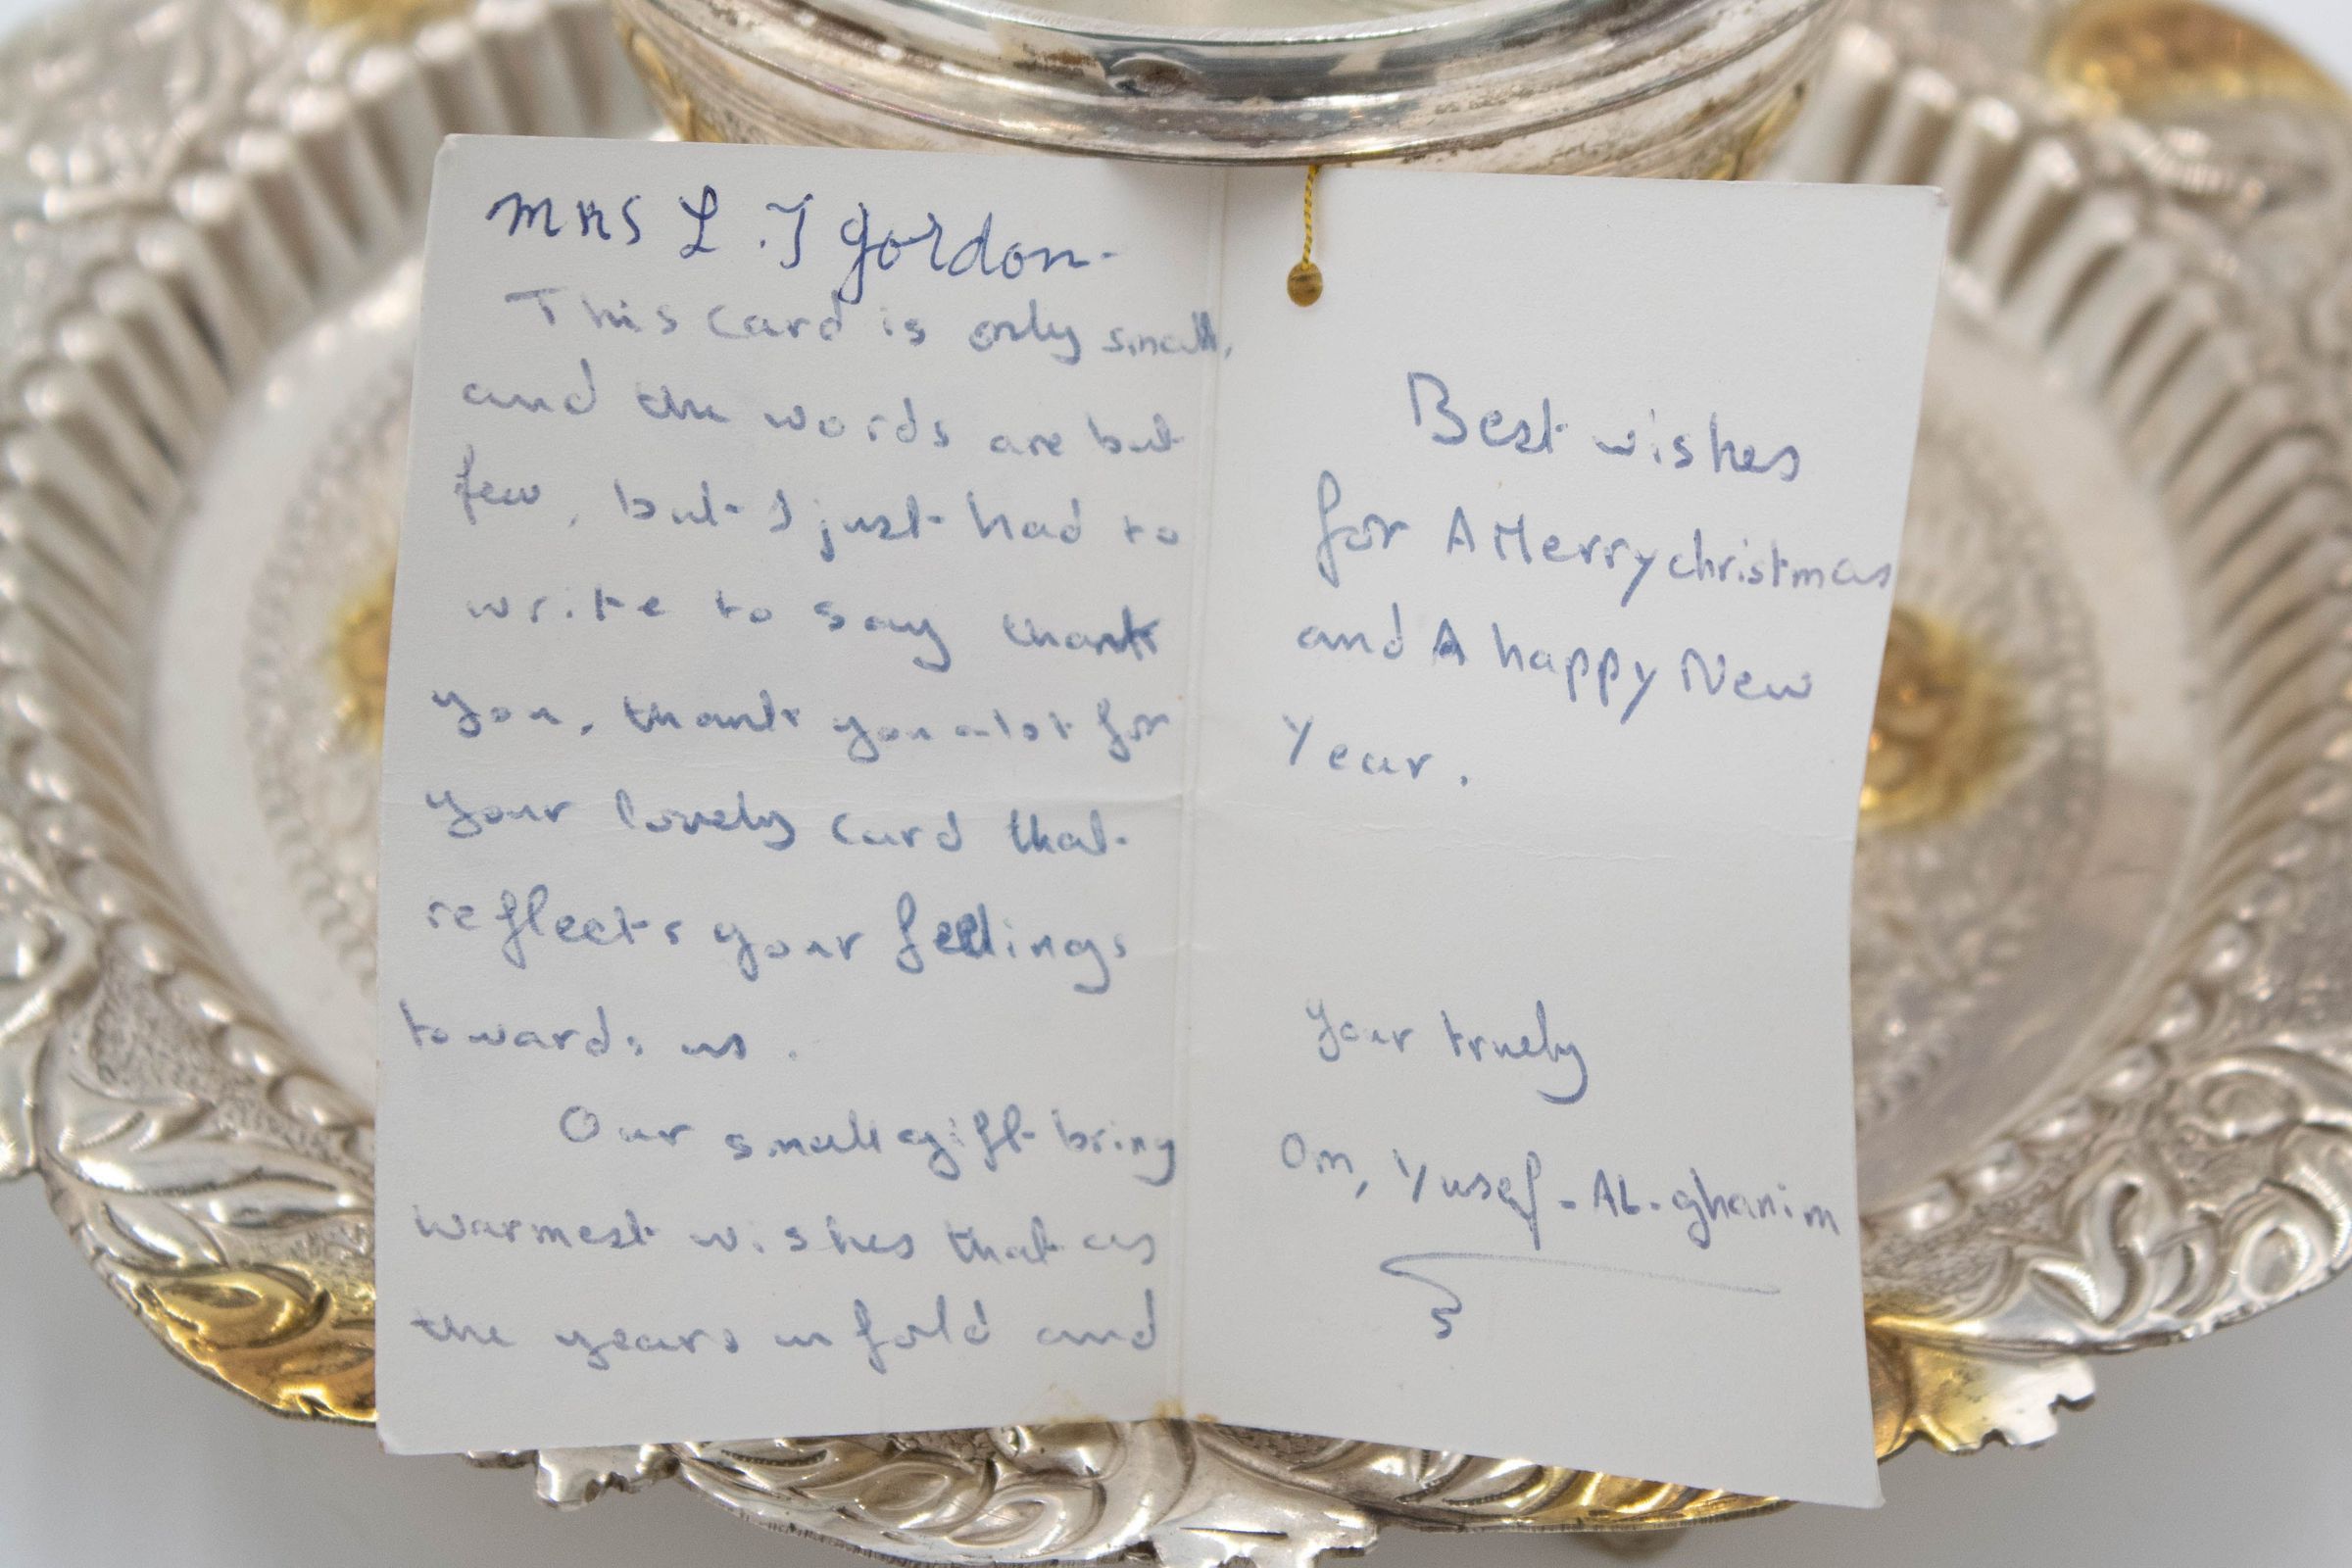 Mrs L.J Gordon-
This card is only small,
and the words are but
few, but I just had to
write to say thank
you, thank you alot for
your lovely card that
reflects your feelings
towards us.
Our small gift bring
warmest wishes that as
the years unfold and
Best wishes
for A Merry christmas
and A happy New
Year.
Your truely
Om, Yusef-AL-ghanim